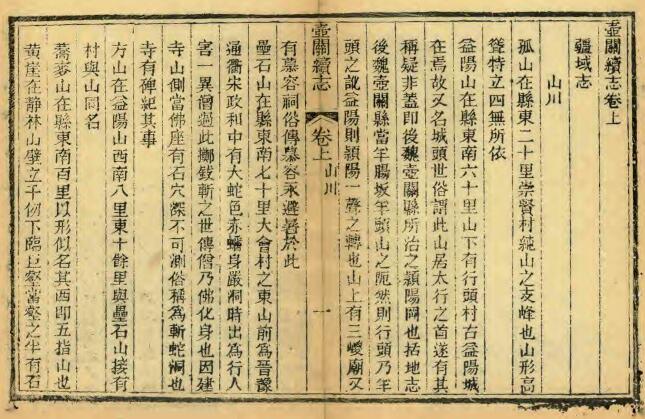 壺關續志卷上
疆域志
山川
孤山在縣東二十里崇賢村純山之支峰也山形高
聳特立四無所依
益陽山在縣東南六十里山下有行頭村古益陽城
在焉故又名城頭世俗謂此山居太行之首遂有其
稱疑非蓋即後魏壺關縣所治之潁陽岡也括地志
後魏壺關縣當羊腸坂羊頭山之阨然則行頭乃羊
頭之訛益陽則潁陽一聲之轉也山上有三嵕廟又
壺關續志
卷上
山川
一
有慕容祠俗傳慕容永避暑於此
壘石山在縣東南七十里大會村之東山前為晉豫
通衢宋政和中有大蛇色赤蠕身嚴洞時出為行人
害一異僧過此擲錢斬之世傳僧乃佛化身也因建
寺山側當佛座有石穴深不可測俗稱為斬蛇洞也
寺有碑紀其事
方山在益陽山西南八里東十餘里與壘石山接有
村與山同名
蕎麥山在縣東南百里以形似名其西即五指山也
黃崖在靜林山壁立千仞下臨巨壑當壑之半有石